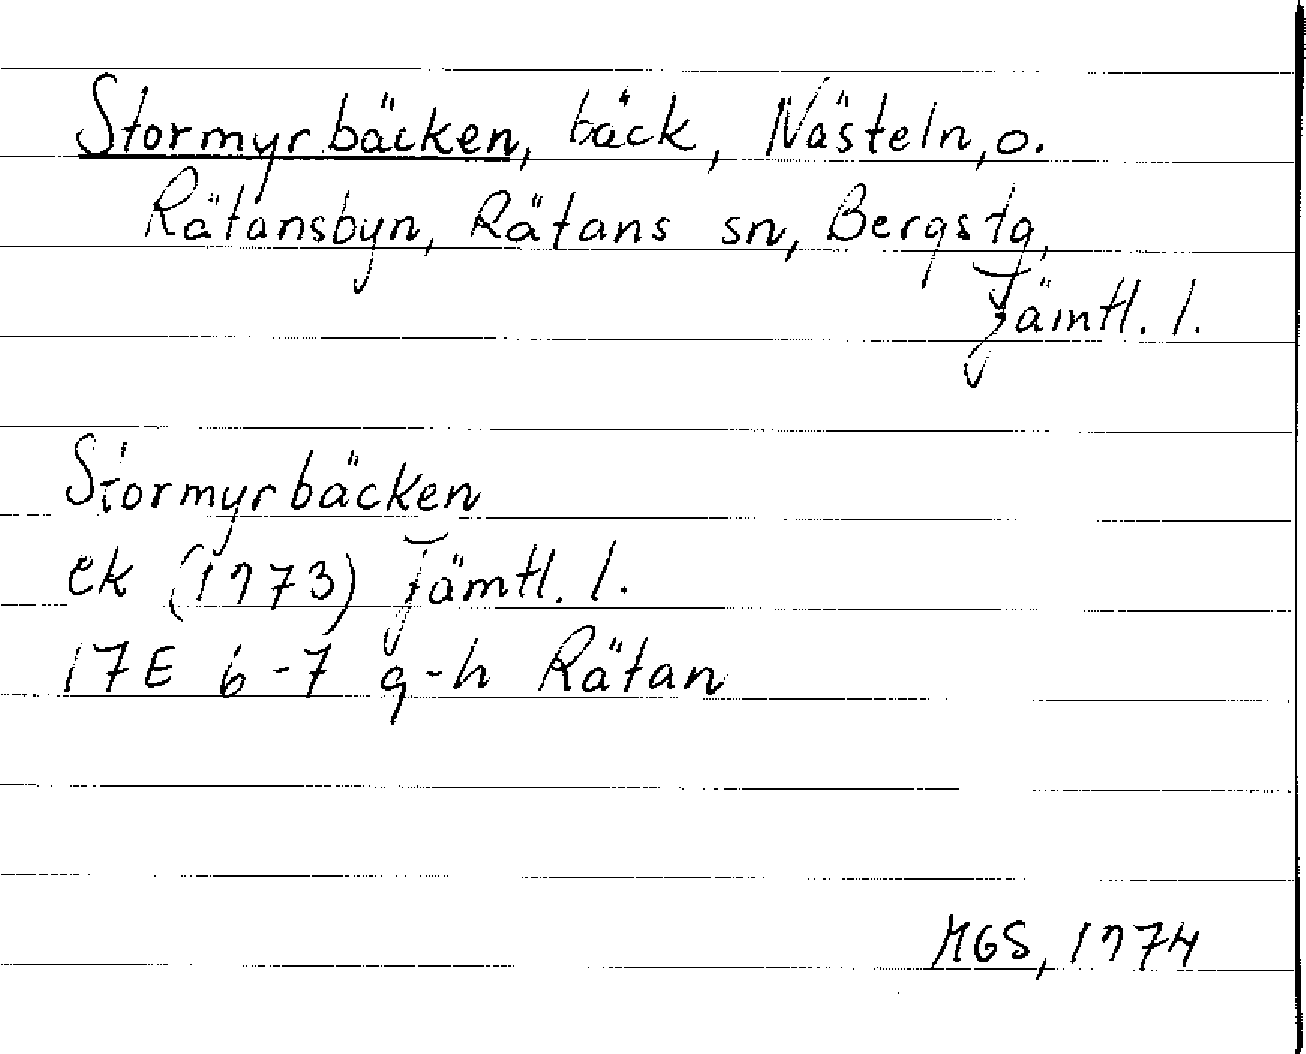 Stormyrbäcken, bäck, Nästeln, o.
Rätansbyn, Rätans sn, Bergs tg,
Jämtl. l.
Stormyrbäcken
ek (1973) Jämtl. l.
17E 6-7 g-h Rätan
MGS, 1974